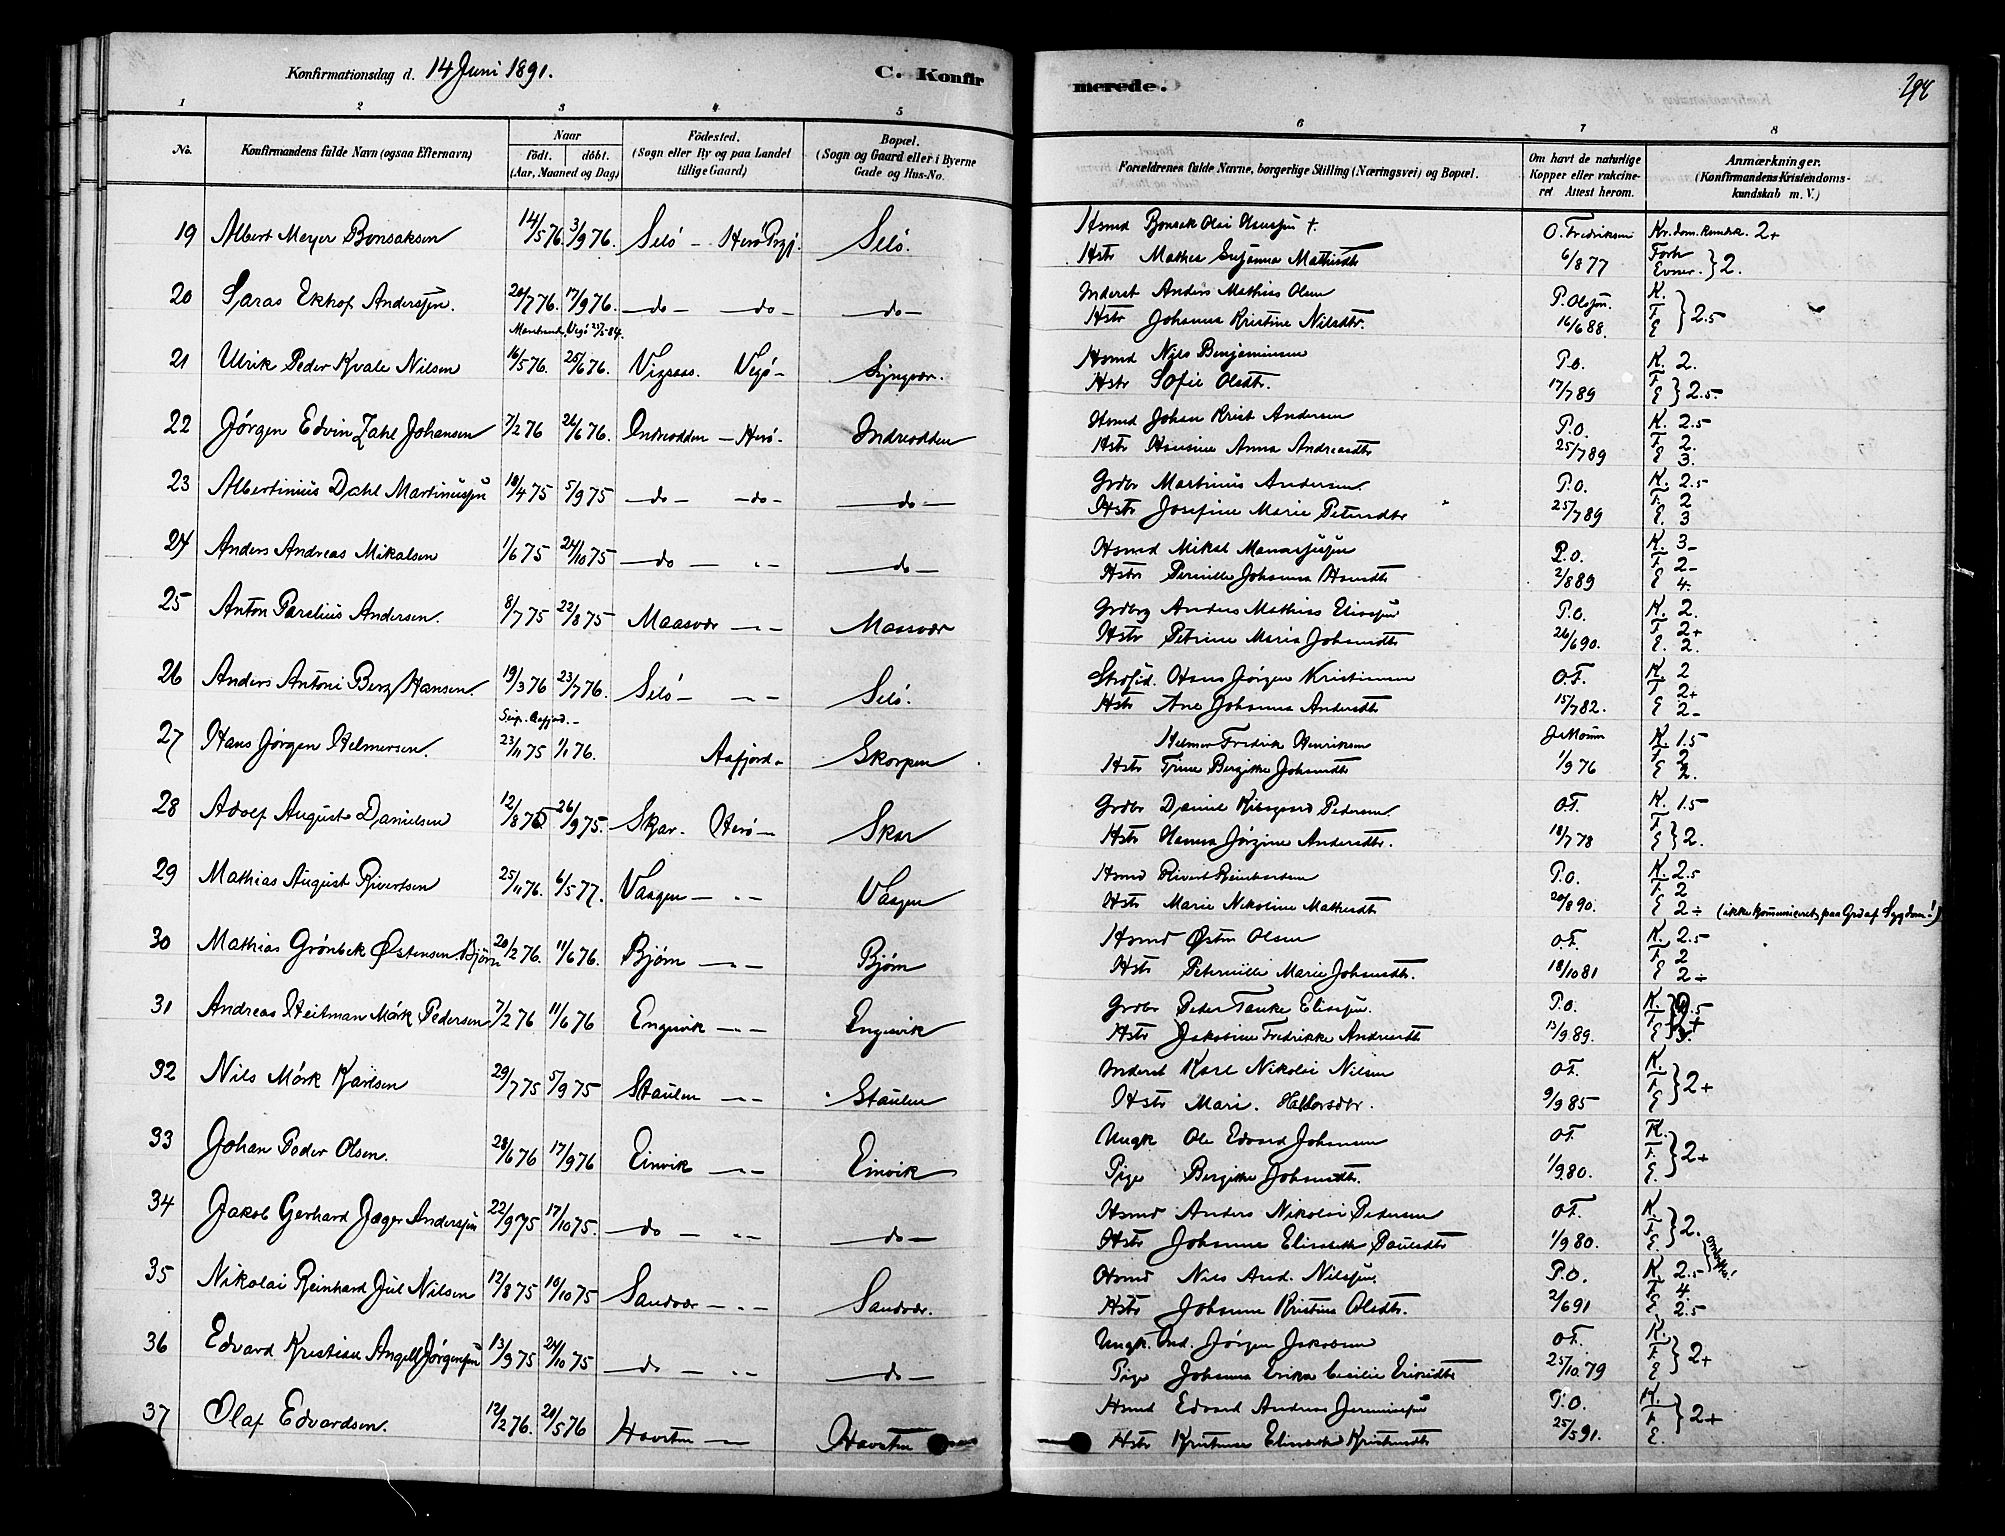 Konfirmationsdag d. 14 Juni 1891.
C. Konfir
merede.
1 2 3 4 5 6 7 8
No.
Konfirmandens fulde Navn (ogsaa Efternavn)
Naar
födt. döbt.
(Aar, Maaned og Dag)
Födested.
(Sogn eller By og paa Landet
tillige Gaard)
Bopæl.
(Sogn og Gaard eller i Byerne
Gade og Hus-No.
Forældrenes fulde Navne, borgerlige Stilling (Næringsvei) og Bopæl.
Om havt de naturlige
Kopper eller vakcine-
ret Attest herom.
Anmærkninger.
(Konfirmandens Kristendoms-
kundskab m. V.)
19 Albert Meyer Bonsaksen 14/5 76. 3/9 76. Selö - Herö Prgj. Selö.
Hsmd Bonsak Olai Hansen †. O. Fredriksen Kr.dom.kundsk. 2+
Hstr Mathea Susanna Mathisdtr 6/8 77 Forh Evner. } 2.
20 Saras Ekhof Anderssen. 20/7 76. 17/9 76. - do - do - - do -
Inderst Anders Mathias Olsen P. Olsson. K.
Hstr Johanna Kristine Nilsdtr. 16/6 88. F E } 2.5
21 Ulrik Peder Kvale Nilsen 16/5 76. 25/6 76. Vigsaas. Vegö - Lyngvær.
Hsmd Nils Benjaminsen P.O. K. 2.
Hstr Sofie Olsdtr. 17/7 89 F E } 2.5.
22 Jörgen Edvin Zahl Johansen 7/2 76 26/6 76. Indreodden - Herö - Indreodden
Hsmd Johan Krist Andersen P.O. K. 2.5
Hstr Hansine Anna Andreasdtr 25/7 89 F. 2. E 3.
23 Albertinius Dahl Martinussen 18/4 75 5/9 75 - do - - do - - do -
Grdbr Martinus Andersen. P.O. K. 2.5
Hstr Josefine Marie Petersdtr 25/7 89 F. 2 E. 3
24 Anders Andreas Mikalsen 1/6 75 24/10 75 - do - " - - do -
Hsmd Mikal Manassesen P.O. K. 3-
Hstr Pernille Johanna Hansdtr 2/8 89 F 2- E 4.
25 Anton Parelius Andersen. 8/7 75 22/8 75 Maasvær - " - Maasvær
Grdbrg Anders Mathias Eliassen P.O. K. 2.
Hstr Petrine Maria Johansdtr 26/6 90. F 2+ E. 2.
26 Anders Antoni Berg Hansen. 19/3 76 23/7 76. Selö - - - Selö.
Hans Jörgen Kristiansen O.F. K. 2
Hstr Ane Johanna Andersdtr 15/7 82. F. 2+ E 2-
27 Hans Jörgen Helmersen. 23/11 75 1/1 76. Aafjord - Skorpen
Helmer Fredrik Henriksen K. 1.5
Hstr Trine Bergitte Johansdtr 1/9 76 F 2 E 2.
28 Adolf August Danielsen 12/8 75 26/9 75. Skjar. Herö - Skar
Grdbr Daniel Kilsgaard Pedersen. O.F. K. 1.5
Hstr Hanna Jörgine Andersdtr. 18/7 78 F E } 2.
29 Mathias August Rivertsen 25/11 76. 6/5 77. Vaagen - " - Vaagen
Hsmd Rivert Reinhardsen P.O. K. 2.5
Hstr Marie Nikoline Mathisdtr 20/8 90. F. 2 E 2÷ (ikke kommuniceret paa Grd af Sygdom!)
30 Mathias Grönbek Østensen Bjørn 20/2 76. 11/6 76. Bjørn - " - Bjørn
Hsmd Østen Olsen O.F. K. 2.5
Hstr Peternille Marie Johansdtr. 18/10 81 F 2 E 2÷
31 Andreas Heitman Mörk Pedersen 7/2 76 11/6 76 Engesvik - " - Engesvik
Grdbr Peder Tanke Eliassen. P.O. K.
Hstr Jakobine Fredrikke Andreasdtr 13/9 89. F E
32 Nils Mörk Karlsen 29/7 75 5/9 75 Staulen " - Staulen
Inderst Karl Nikolai Nilsen O.F. K.
Hstr Mari. Hallorsdtr. 9/9 85 F. E } 2+
33 Johan Peder Olsen. 28/6 76 17/9 76 Einvik " - Einvik
Ungk Ole Edvard Johansen O.F. K.
Pige Bergitte Johansdtr. 1/9 80. F. E. } 2+
34 Jakob Gerhard Jæger Anderssen 22/9 75 17/10 75. do - " - - do -
Hsmd Anders Nikolai Pedersen O.F. K.
Hstr Johanna Elisabeth Paulsdtr 1/9 80. F. E. } 2.
35 Nikolai Reinhard Jul Nilsen 12/8 75 10/10 75 Sandvær - " - Sandvær.
Hsmd Nils And. Nilssen. P.O. K. 2.5
Hstr Johanna Kristina Olsdtr. 2/6 91 F 4 E. 2.5
36 Edvard Kristian Angell Jörgensen 13/9 75 24/10 75 - do - " - - do -
Ungk. Jörgen Jakobsen O.F. K.
Pige Johanna Erika Cecilie Eriksdtr 25/10 79 F. E } 2+
37 Olaf Edvardsen. 12/2 76. 21/5 76 Havsten - " - Havsten
Hsmd Edvard Andreas Jeremiassen P.O. K.
Hstr Kristense Elisabeth Kristensdtr 25/5 91. F. E. } 2+